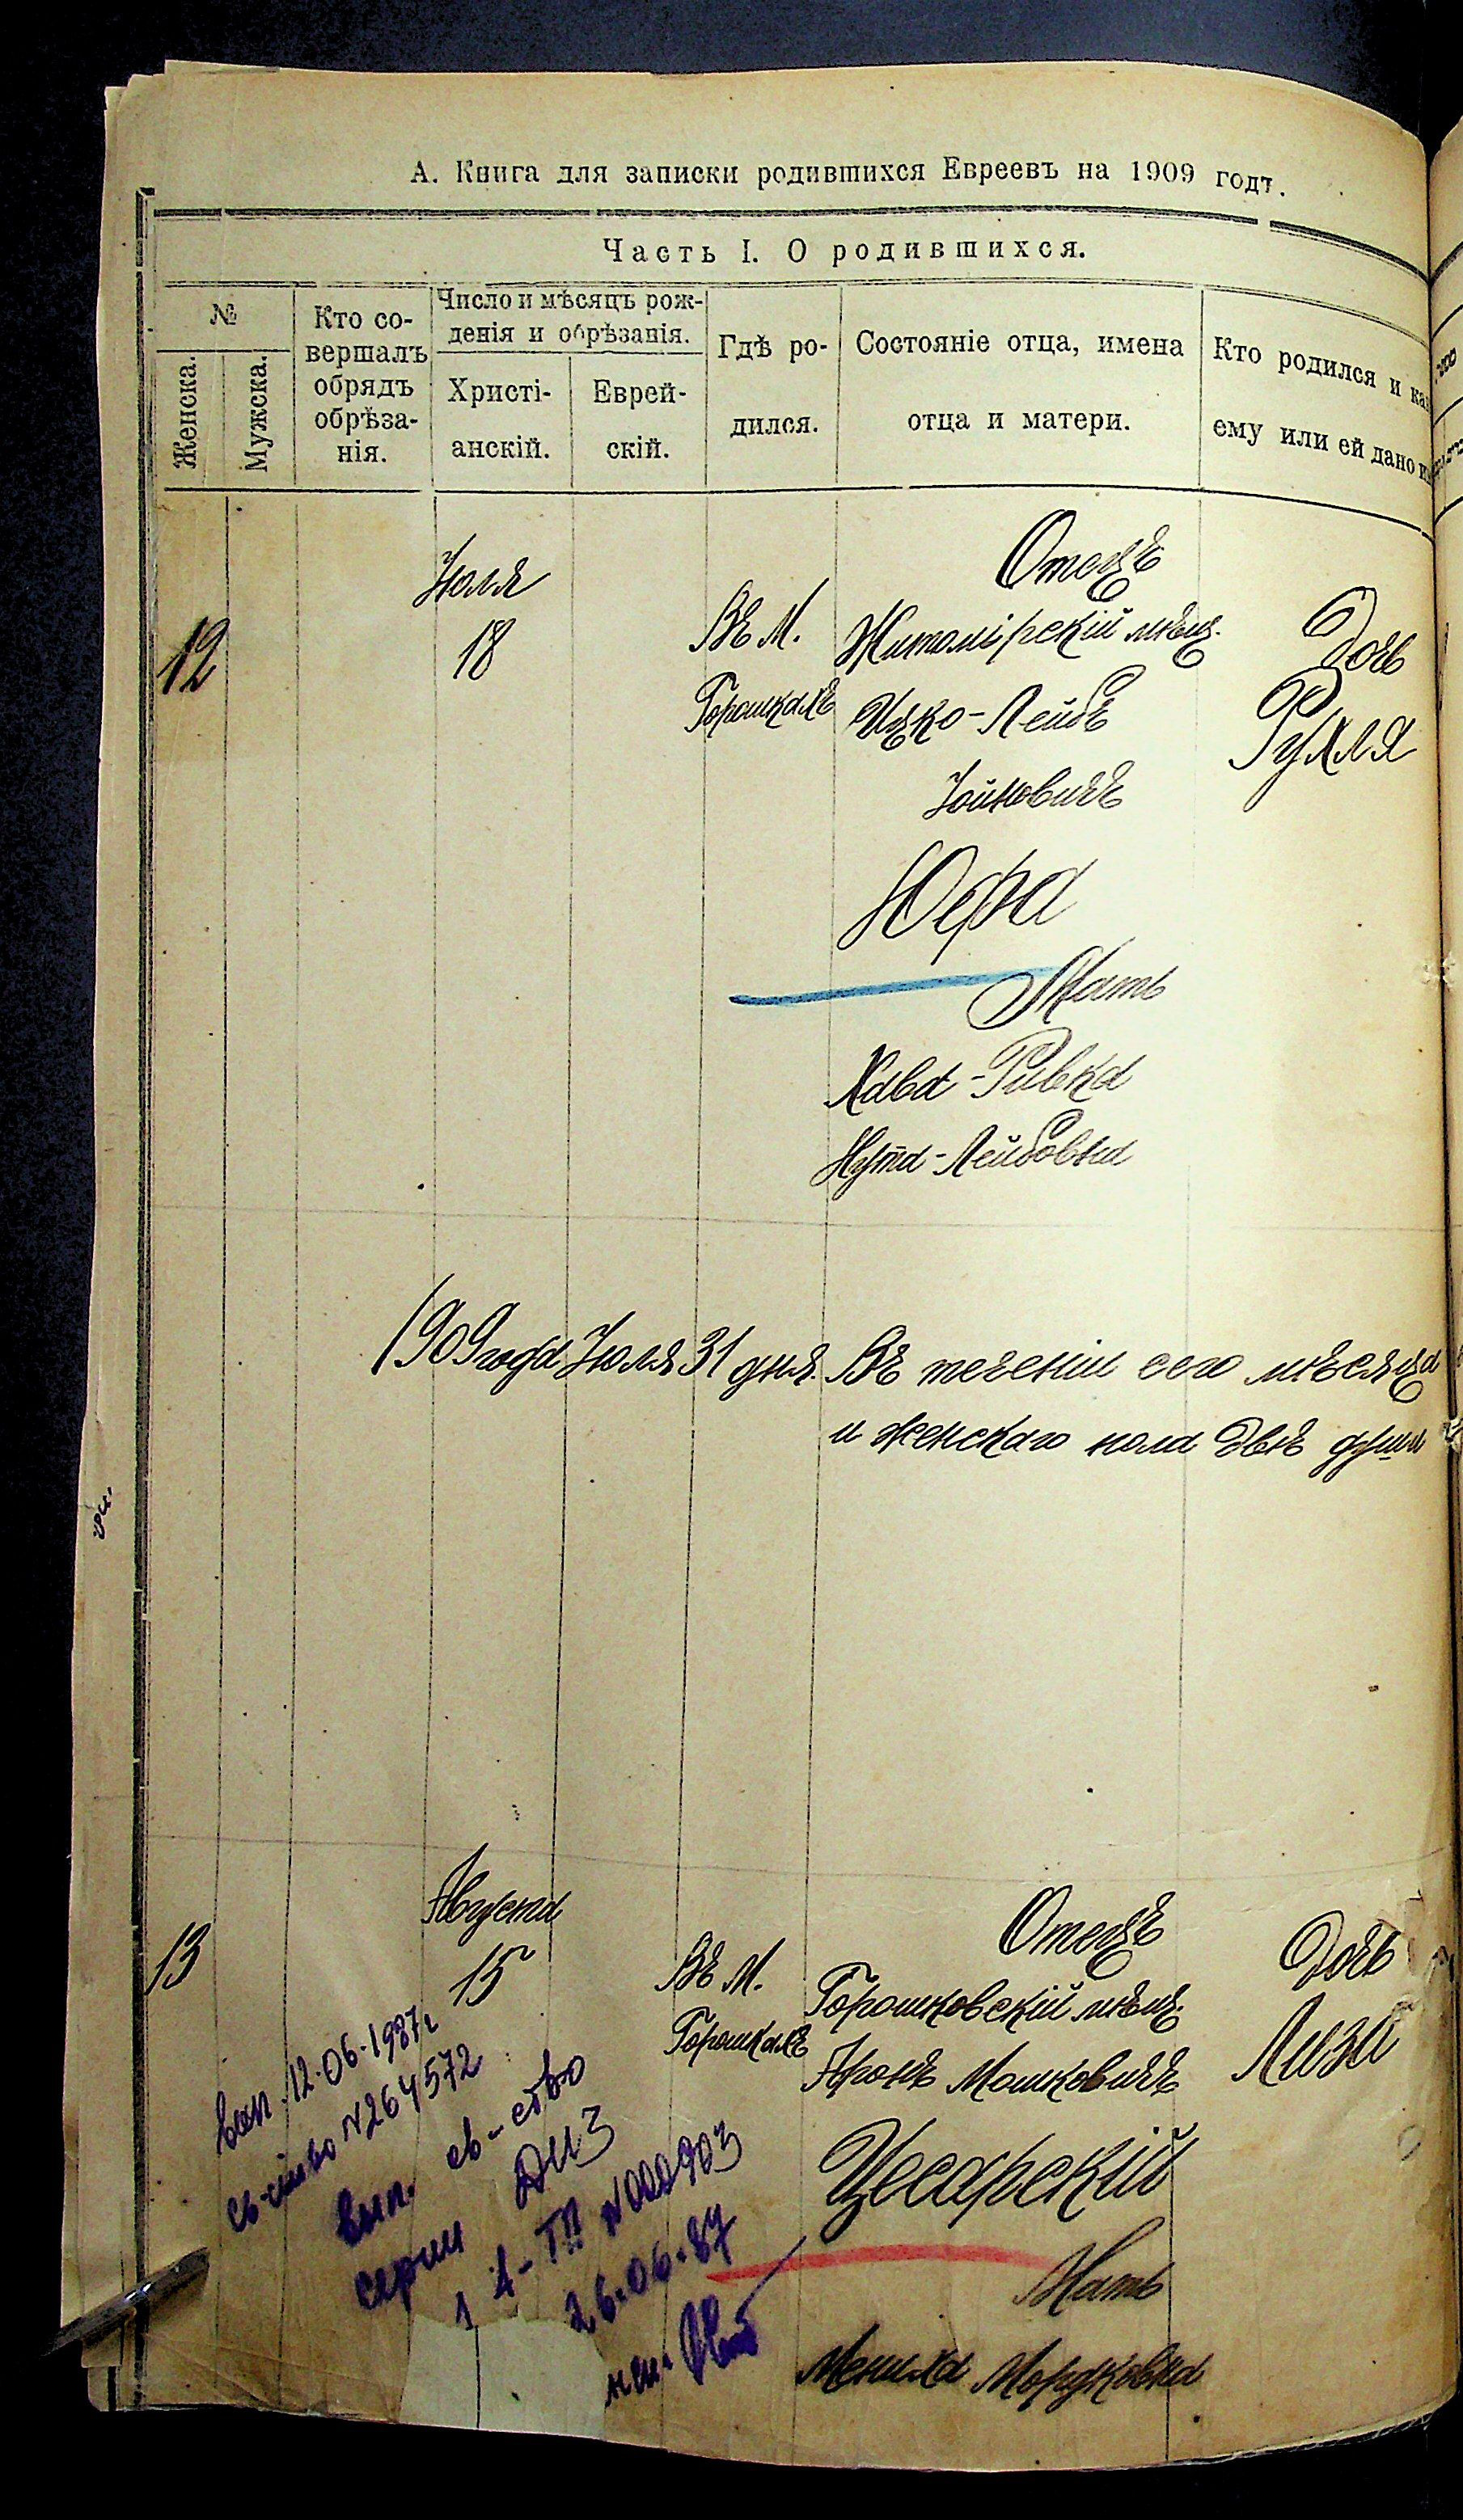 А. Книга для записки родившихся Евреевъ на 1909 годъ.
Часть I. О родившихся.
№
Женска.
Мужска.
Кто со-
вершалъ
обрядъ
обрѣза-
нія.
Число и мѣсяцъ рож-
денія и обрѣзанія.
Христі-
анскій.
Еврей-
скій.
Гдѣ ро-
дился.
Состояніе отца, имена
отца и матери.
Кто родился и как
ему или ей дано и
12
Іюля
18
Въ М.
Горошкахъ
Отецъ
Житомірскій мѣщ.
Ицко-Лейбъ
Іойновичъ
Юфа
Мать
Хава-Ривка
Нута-Лейбовна
Дочь
Рухля
1909 года Іюля 31 дня. Въ теченіи сего мѣсяца
и женскаго пола двѣ души
13
Августа
15
Въ М.
Горошкахъ
Отецъ
Горошковскій мѣщ.
Аронъ Мошковичъ
Цесарскій
Мать
Мениха Мордковна
Дочь
Лиза
12.06.1987г
св-ство №264572
Вып. св-ство
серии
1 А-ТП №000903
26.06.87